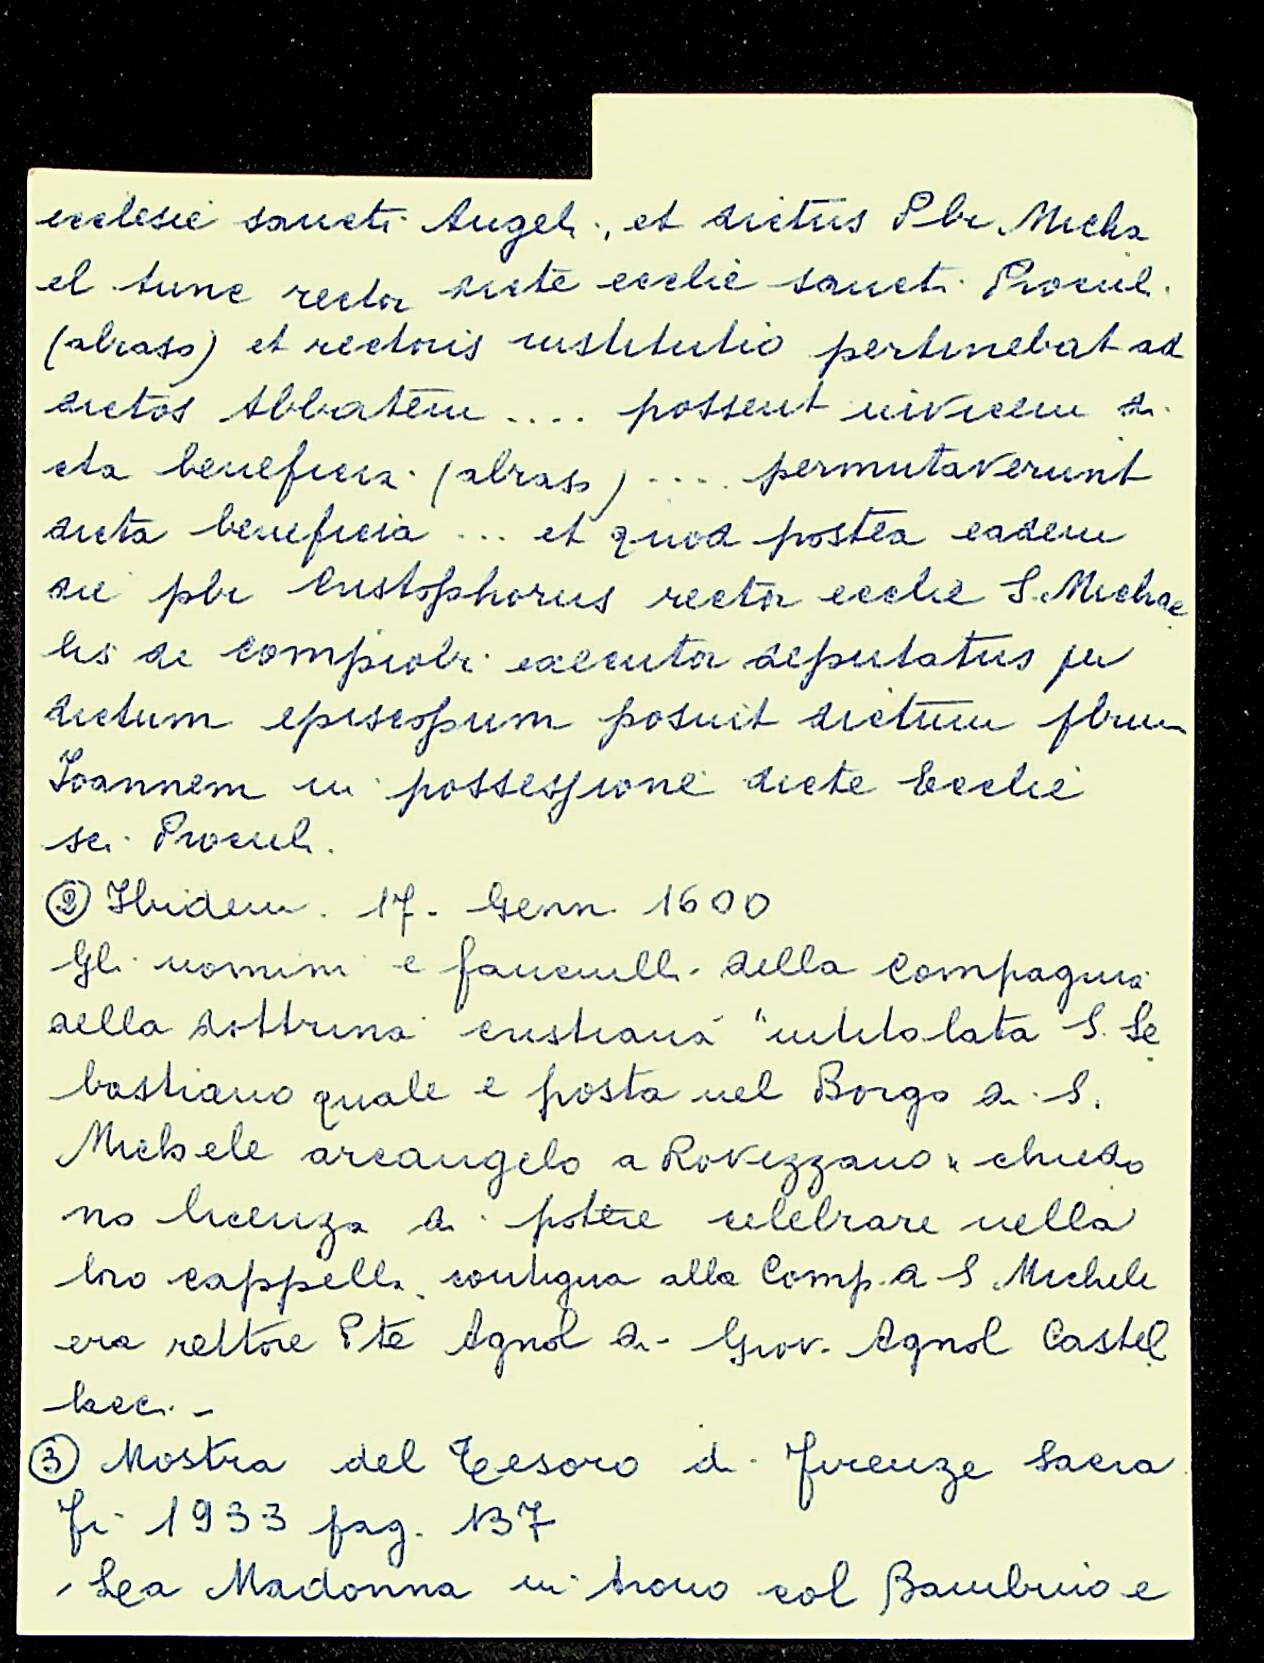 ecclesie sancti Angeli, et dictus Pbr Micha
el tunc rector dicte ecclie sancti Proculi.
(abraso) et rectoris institutio pertinebat ad
dictos Abbatem .... possent vivicem di
cta beneficia (abraso) .... permutaverunt
dicta beneficia ... et quod postea eadem
die pbr Cristophorus rector ecclie S. Michae
lis de Compiobi executor deputatus per
dictum episcopum posuit dictum pbrum
Ioannem in possessione dicte Ecclie
sci Proculi.
② Ibidem. 17. Genn. 1600
Gli uomini e fanciulli della Compagnia
della dottrina cristiana "intitolata S. Se
bastiano quale e posta nel Borgo di S.
Michele arcangelo a Rovezzano" chiedo
no licenza di potere celebrare nella
loro cappella contigua alla Comp. di S. Michele
era rettore Pte Agnol di Giov. Agnol Castel
lacci. -
③ Mostra del Tesoro di Firenze Sacra
Fi 1933 pag. 137
La Madonna in trono col Bambino e